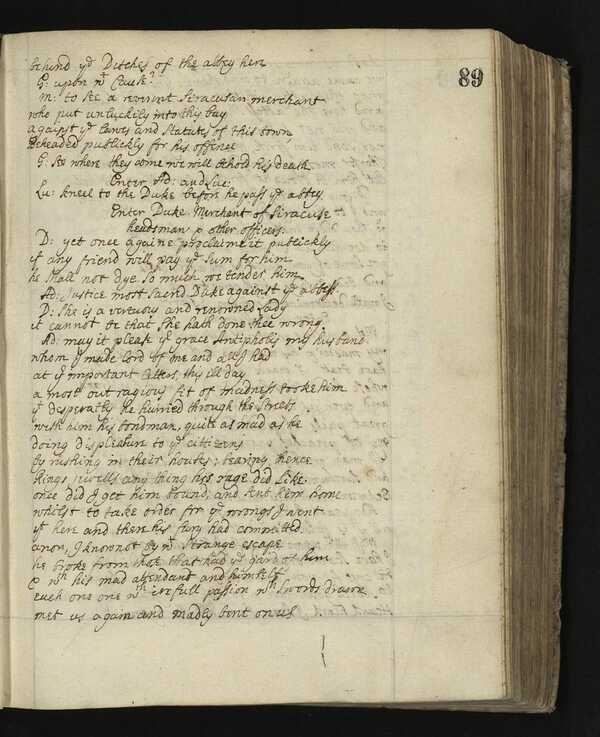 89
behind yͤ Ditches of the abbey here
G: upon wᵗ Cause?
M: to see a reverent Siracusan merchant
who put unluckily into this bay
against yͤ lawes and statutes of this town,
Beheaded publickly for his offence
G. see where they come we will behold his death
Enter Ad: and Luc:
Lu: kneel to the Duke before he pass yͤ abbey
Enter Duke Merchant of Siracuse
headsman & other officers.
D: yet once againe proclaime it publickly
if any friend will pay yͤ sum for him
he shall not dye so much we tender him
Ad: Justice most sacred Duke against yͤ abbess
D: she is a vertuous and renowned lady
it cannot be that she hath done thee wrong.
Ad: may it please yͬ grace Antipholis my husband
whom I made lord of me and all I had
at yͬ important letters, this ill day
a most outragious fit of madness tooke him
yᵗ desperately he hurried through the streets
with him his bondman, quite as mad as he
doing displeasure to yͤ citizens
by rushing in their houses; bearing hence
Rings jewells any thing his rage did like.
once did I get him bound, and sent him home
whilst to take order for yͤ wrongs I went
yᵗ here and there his fury had committed.
anon, I know not by wᵗ strange escape
he broke from those that had yͤ gard of him
& wᵗʰ his mad attendant and himselfe
each one one wᵗʰ irefull passion wᵗʰ swords drawn
met us again and madly bent on us